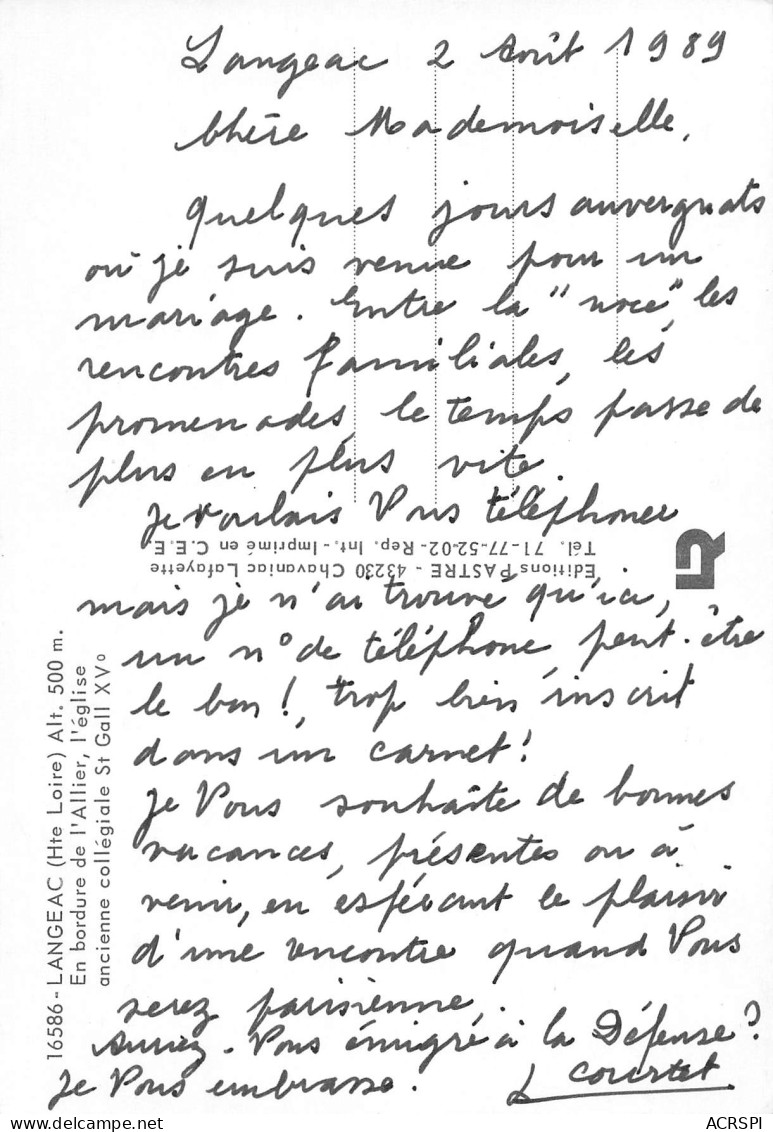 Langeac 2 Août 1989
Chère Mademoiselle,
quelques jours auvergnats
où je suis venue pour un
mariage. Entre la "noce", les
rencontres familiales, les
promenades, le temps passe de
plus en plus vite.
Je voulais Vous téléphoner
Tél. 71-77-52-02 - Rep. Int. - Imprimé en C.E.E.
Editions PASTRE - 43230 Chavaniac Lafayette
mais je n'ai trouvé qu'ici,
un n° de téléphone, peut-être
le bon!, trop bien inscrit
dans un carnet!
Je Vous souhaite de bonnes
vacances, présentes ou à
venir, en espérant le plaisir
d'une rencontre quand Vous
serez parisienne.
Auriez-Vous émigré à la Défense?
Je Vous embrasse.
Courtet
16586 - LANGEAC (Hte Loire) Alt. 500 m.
En bordure de l'Allier, l'église
ancienne collégiale St Gall XV°
ACRSPI